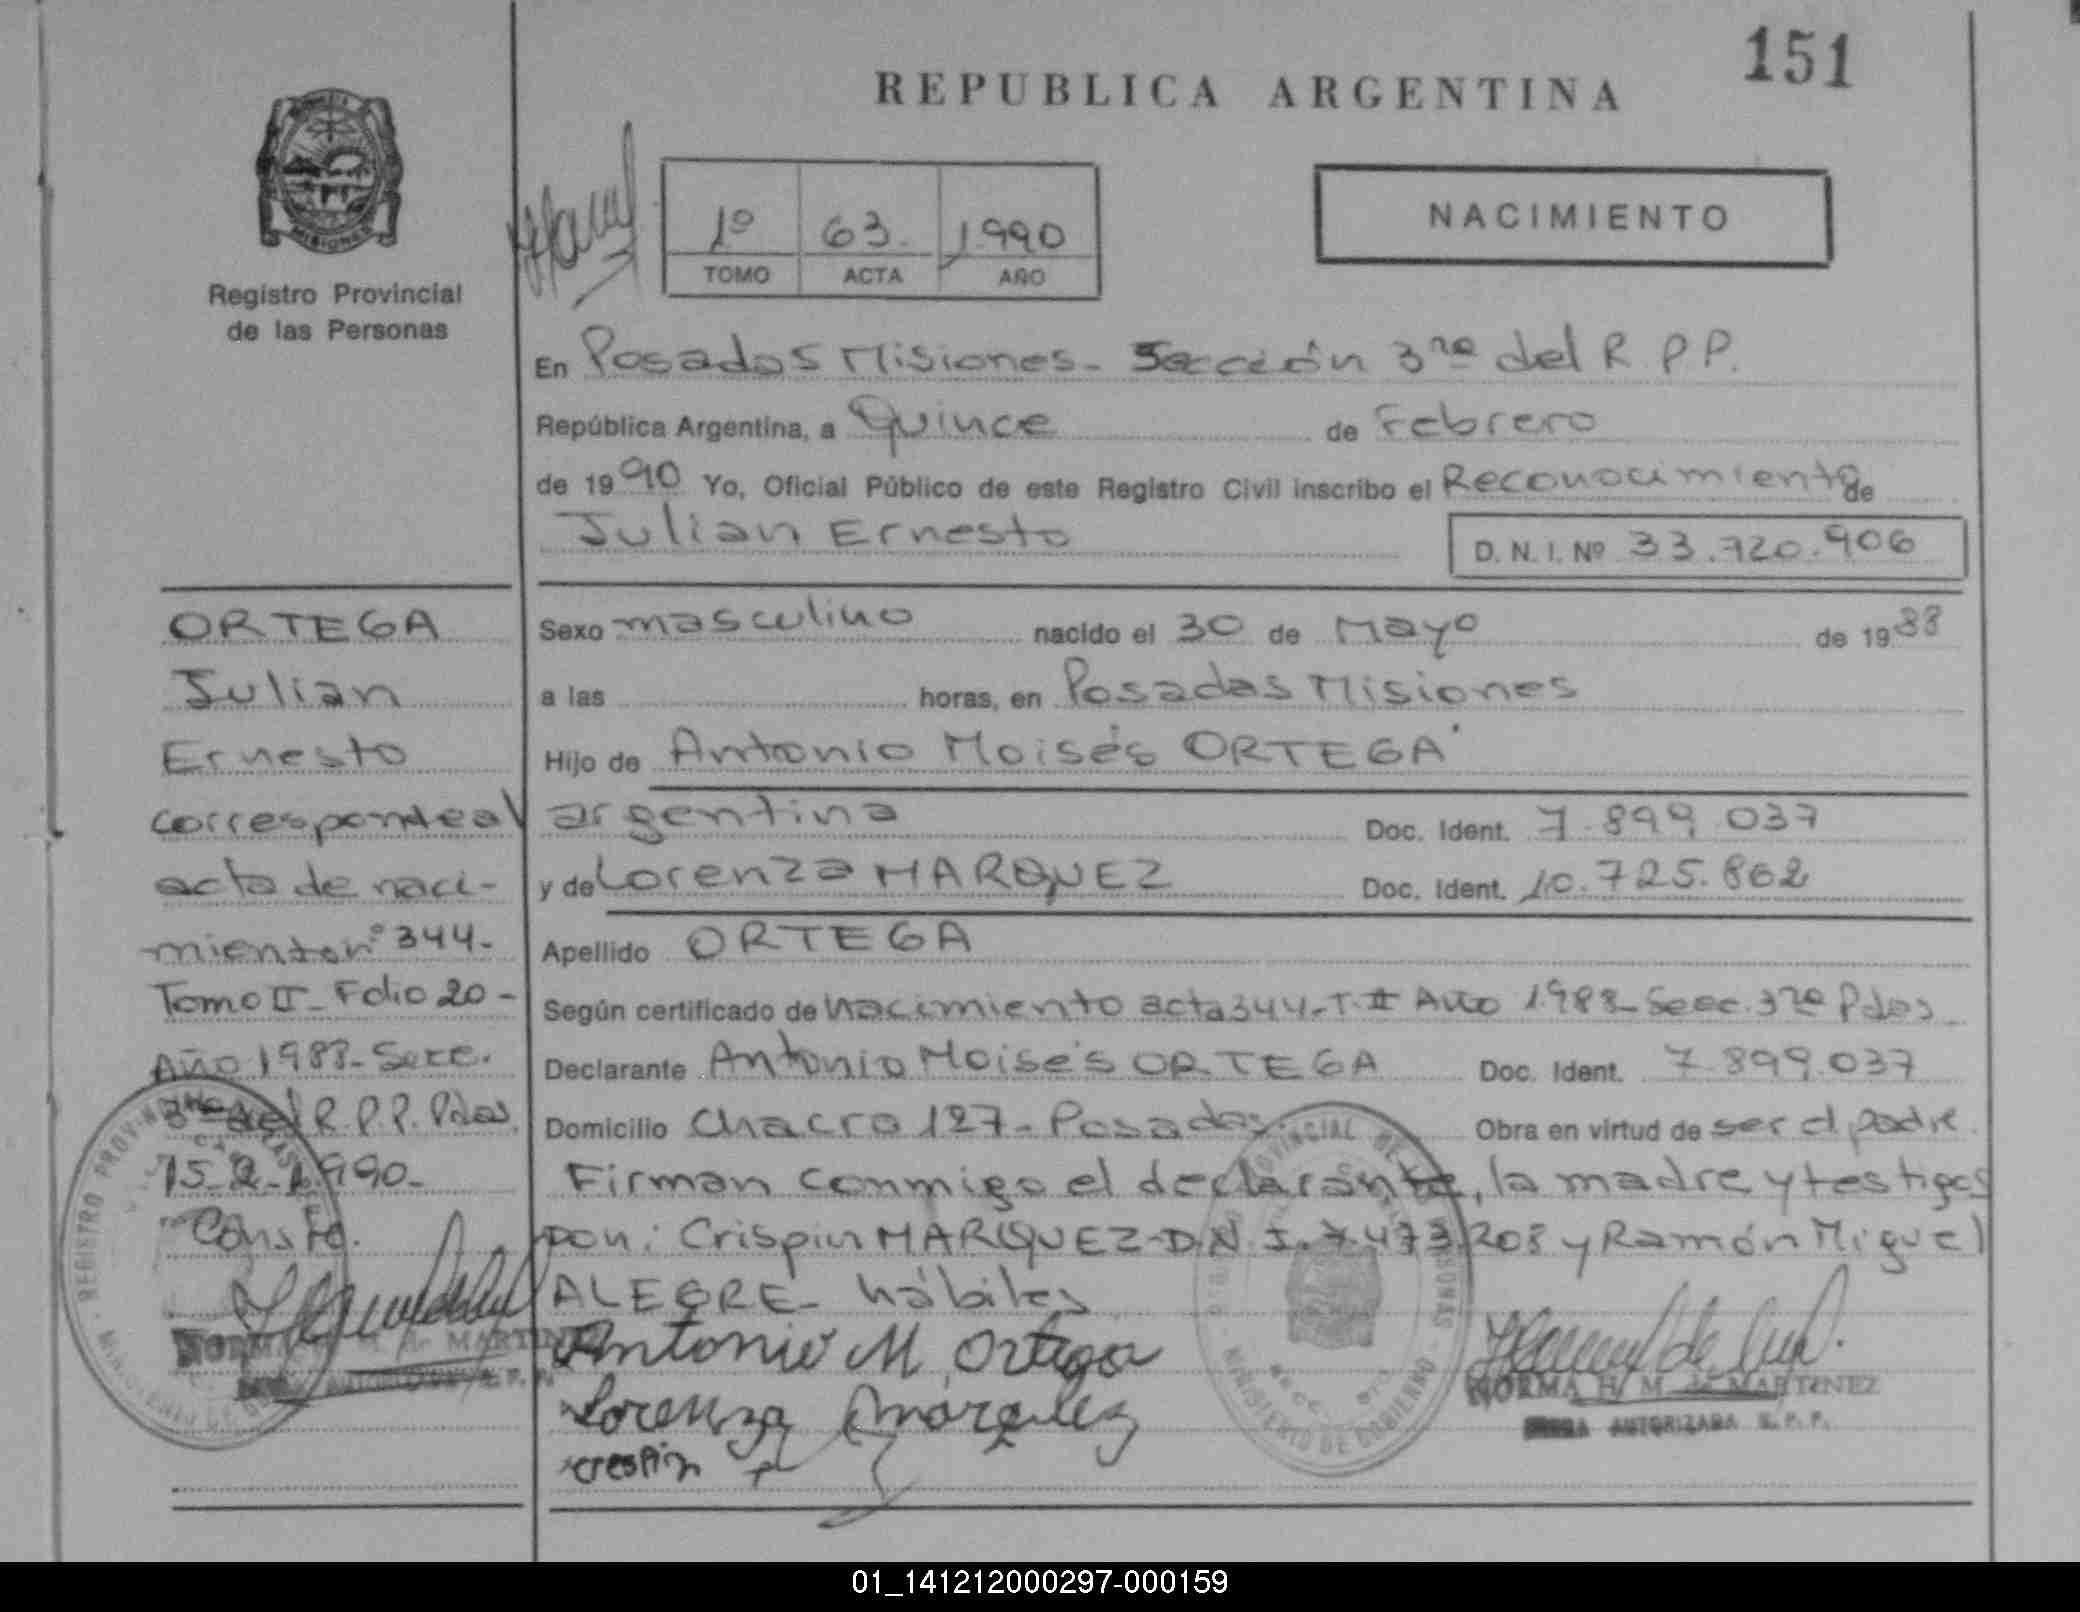 151
REPUBLICA ARGENTINA
MISIONES
Registro Provincial
de las Personas
1º 63. 1990
TOMO ACTA AÑO
NACIMIENTO
En Posadas Misiones - Sección 3ra del R.P.P.
República Argentina, a Quince de Febrero
de 1990 Yo, Oficial Público de este Registro Civil inscribo el Reconocimiento de
Julian Ernesto
D. N. I. Nº 33.720.906
Sexo masculino nacido el 30 de Mayo de 1988
a las horas, en Posadas Misiones
Hijo de Antonio Moisés ORTEGA
argentina Doc. Ident. 7.899.037
y de Lorenza MARQUEZ Doc. Ident. 10.725.862
Apellido ORTEGA
Según certificado de nacimiento acta 344-T.II Año 1988-Secc. 3ra Pdas
Declarante Antonio Moisés ORTEGA Doc. Ident. 7.899.037
Domicilio Chacra 127 - Posadas. Obra en virtud de ser el padre.
Firman conmigo el declarante, la madre y testigos
Crispin MARQUEZ-D.N.I. 7.473.203 y Ramón Miguel
ALEGRE - hábiles
Antonio M. Ortega
Lorenza
crespin
NORMA H. M. de MARTINEZ
AUTORIZADA R.P.P.
ORTEGA
Julian
Ernesto
corresponde al
acta de naci-
miento nº 344-
Tomo II - Folio 20 -
Año 1988- Secc.
3ra del R.P.P. Pdas.
15-2-1990-
Conste.
NORMA H. M. de MARTINEZ
REGISTRO PROVINCIAL DE LAS PERSONAS
MINISTERIO DE GOBIERNO
01_141212000297-000159